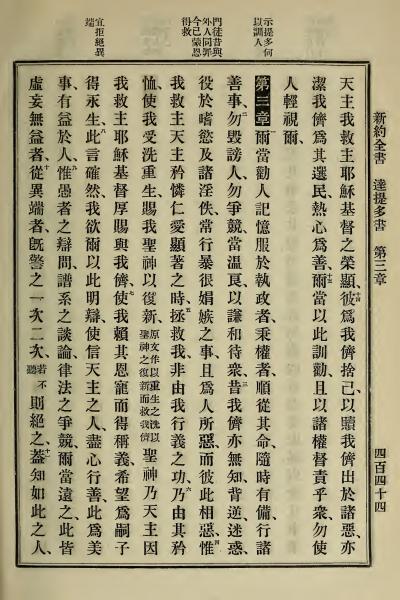 新約全書 達提多書 第三章 四百四十四
示提多何以訓人
門徒昔與外人同罪今已蒙恩得救
宜拒絕異端
天主我救主耶穌基督之榮顯、彼爲我儕捨己、以贖我儕出於諸惡、亦
潔我儕爲其選民、熱心爲善、爾當以此訓勸、且以諸權督責乎衆、勿使
人輕視爾、
第三章 爾當勸人記憶服於執政者、秉權者、順從其命、隨時有備行諸
善事、勿毀謗人、勿爭競、當温良、以謙和待衆、昔我儕亦無知背逆迷惑、
役於嗜慾及諸淫佚、常行暴很娼嫉之事、且爲人所惡、而彼此相惡、惟
我救主天主矜憐仁愛顯著之時、拯救我、非由我行義之功、乃由其矜
恤、使我受洗重生、賜我聖神以復新、原文作以重生之洗以聖神之復新而救我儕 聖神乃天主因
我救主耶穌基督厚賜與我儕、使我賴其恩寵而得稱義、希望爲嗣子
得永生、此言確然、我欲爾以此明辯、使信天主之人、盡心行善、此爲美
事、有益於人、惟愚者之辯問、譜系之談論、律法之爭競、爾當遠之、此皆
虛妄無益者、從異端者、旣警之一次二次、若不聽 則絕之、蓋知如此之人、